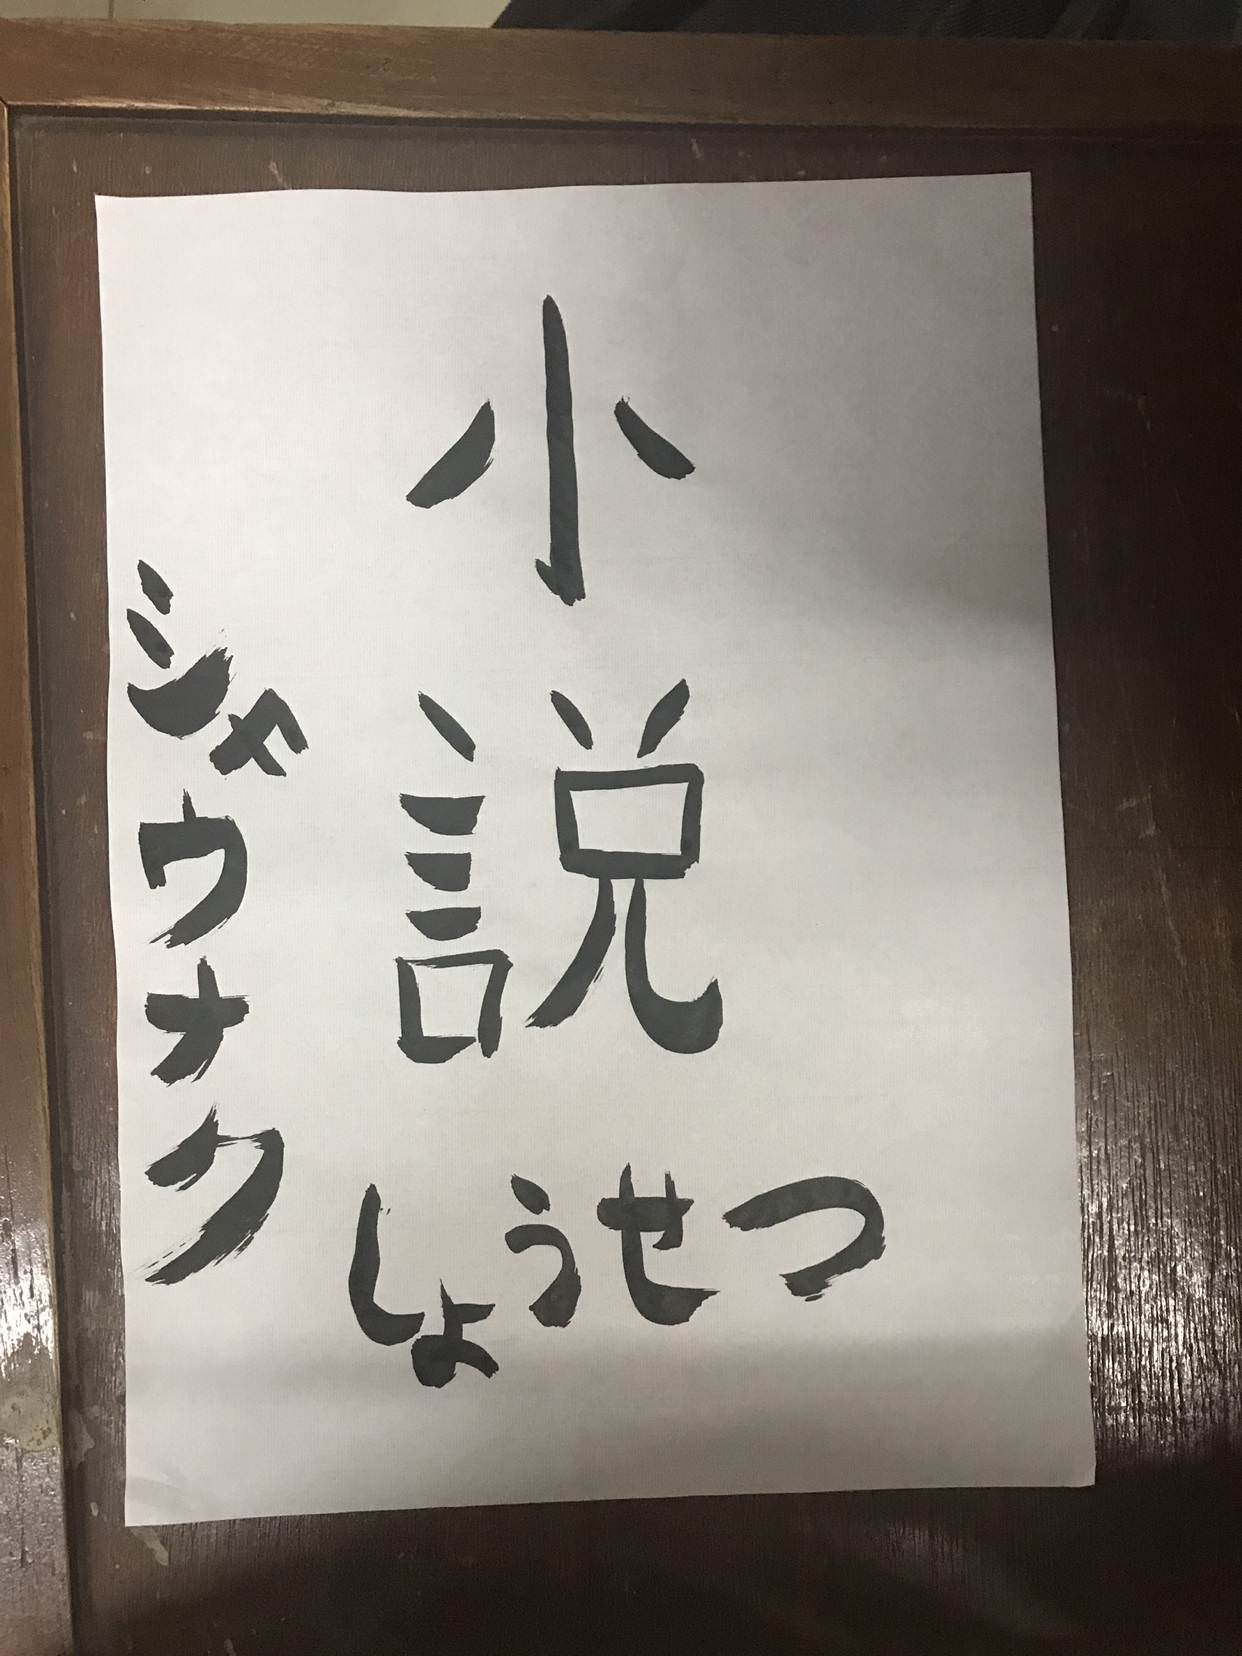 小説
しょうせつ
シャウナク